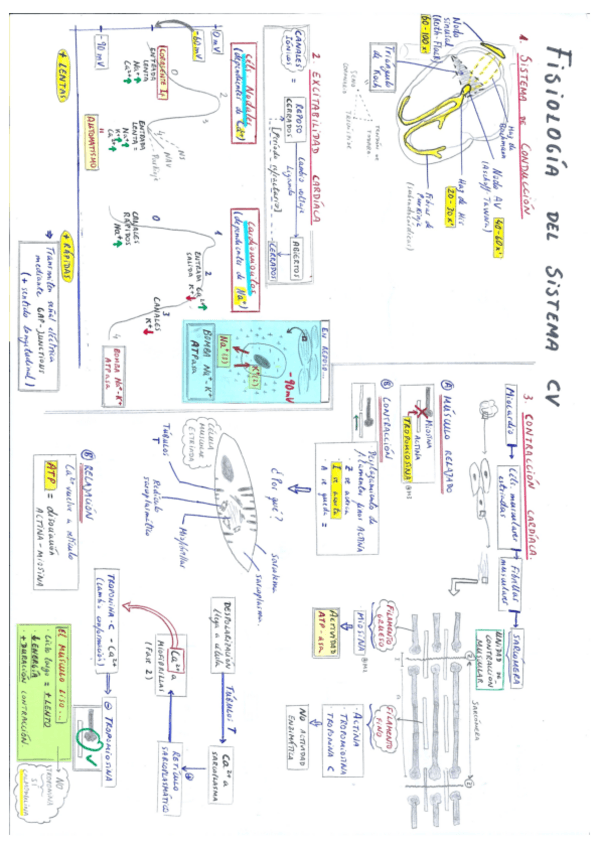 FISIOLOGÍA DEL SISTEMA CV
1. SISTEMA DE CONDUCCIÓN
Nodo
sinusal
(Keith-Flack)
60-100x'
Triángulo
de Koch
Haz de
Bachmann
Nodo AV
40-60x'
(Aschoff-Tawara)
Haz de His
20-30x'
Fibras de
Purkinje
(subendocárdicas)
SENO
CORONARIO
2. EXCITABILIDAD CARDÍACA
CANALES
IÓNICOS
=
REPOSO
CERRADOS
Cambio voltaje
Ligando
ABIERTOS
CERRADOS
[Período refractario]
Céls Nodales
(dependientes de Ca²⁺)
Cardiomiocitos
(dependientes de Na⁺)
0 mV
-60mV
-90mV
CORRIENTE If
ENTRADA
LENTA
Na⁺
Ca²⁺
0
2
3
4
ENTRADA
LENTA =
Na⁺
K⁺
Ca²⁺
NS
NAV
Purkinje
AUTOMATISMO
+ LENTAS
0
1
2
3
4
CANALES
RÁPIDOS
Na⁺
ENTRADA Ca²⁺
SALIDA K⁺
CANALES
K⁺
BOMBA Na⁺-K⁺
ATPasa
+ RÁPIDAS
Transmiten señal eléctrica
mediante GAP-JUNCTIONS
(+ sentido longitudinal)
EN REPOSO...
-90mV
BOMBA Na⁺-K⁺
ATPasa
3. CONTRACCIÓN CARDÍACA.
Miocardio
Céls. musculares
estriadas
Fibrillas
musculares
SARCÓMERA
UNIDAD DE
CONTRACCIÓN
MUSCULAR
SARCÓMERA
Ⓐ MÚSCULO RELAJADO
MIOSINA
ACTINA
TROPOMIOSINA
Ⓑ CONTRACCIÓN
Desplazamiento de
filamentos finos ACTINA
I se acorta
A se queda =
¿Por qué?
FILAMENTO
GRUESO
MIOSINA
ACTIVIDAD
ATP-asa
FILAMENTO
FINO
· ACTINA
· TROPOMIOSINA
· TROPONINA C
NO ACTIVIDAD
ENZIMÁTICA
CÉLULA
MUSCULAR
ESTRIADA
TÚBULOS
T
Retículo
sarcoplasmático
Miofibrillas
Sarcolema
sarcoplasma.
DESPOLARIZACIÓN
llega a célula
TÚBULOS T
Ca²⁺ a
SARCOPLASMA
RETÍCULO
SARCOPLASMÁTICO
Ca²⁺ a
MIOFIBRILLAS
(Fase 2)
TROPONINA-C - Ca²⁺
(cambio conformación)
⊖ TROPOMIOSINA
Ⓑ RELAJACIÓN
Ca²⁺ vuelve a retículo
ATP = disociación
ACTINA-MIOSINA
EL MÚSCULO LISO...
· Ciclo largo = + LENTO
↓ ENERGÍA
+ DURACIÓN CONTRACCIÓN
NO
TROPONINA
SÍ
CALMODULINA